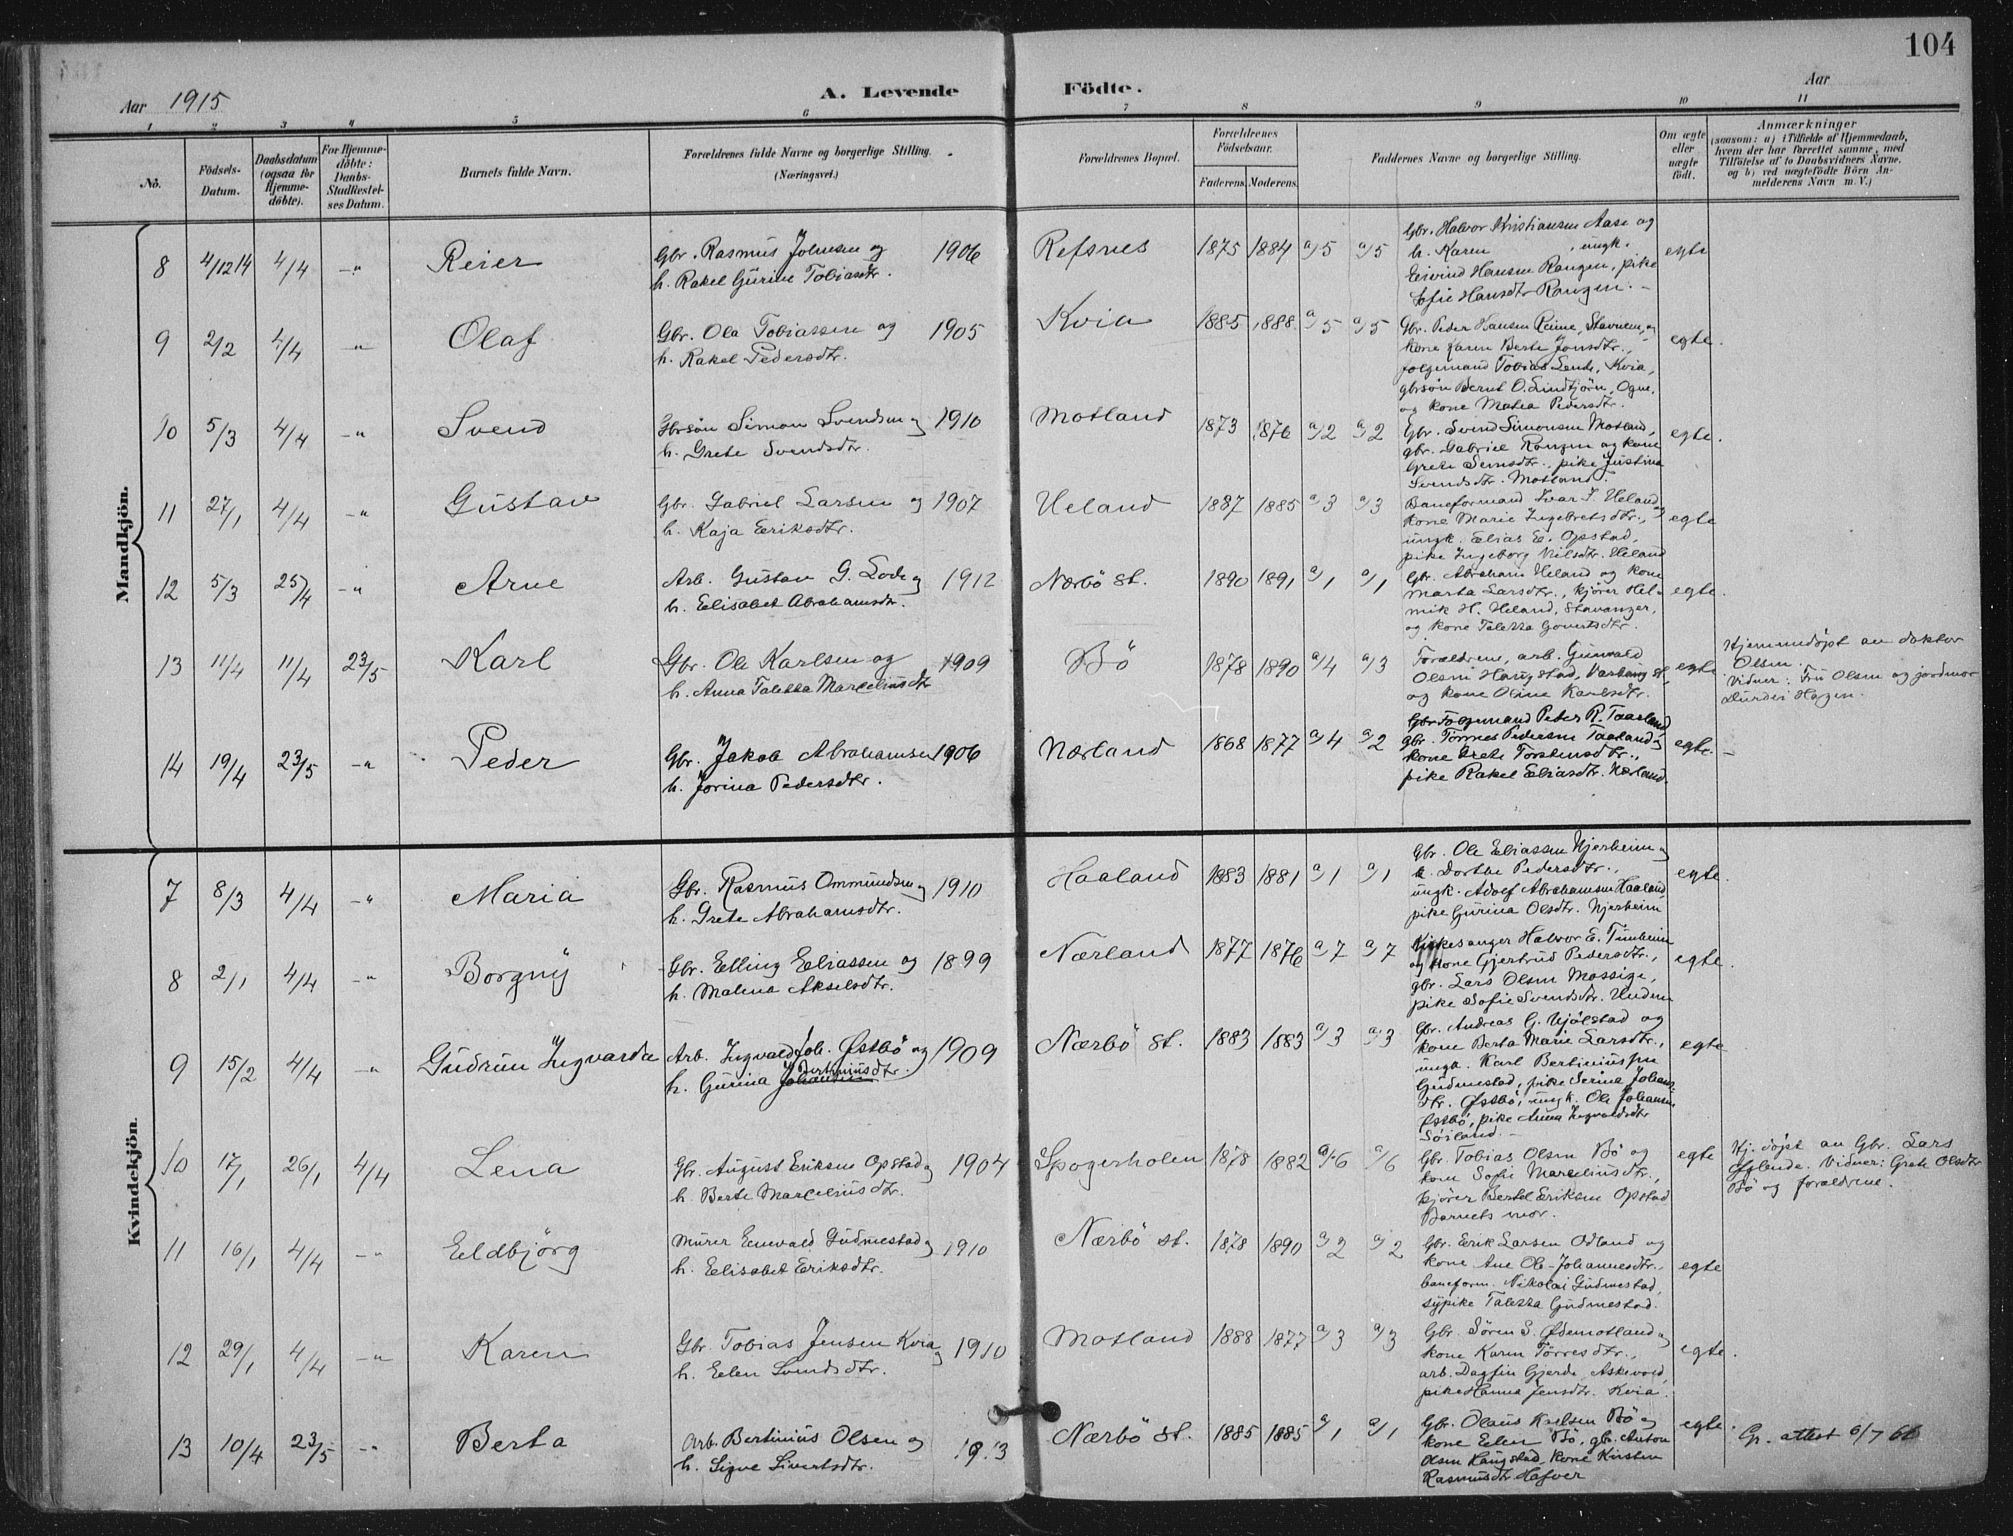 104
Aar 1915
A. Levende Födte.
Aar
1 2 3 4 5 6 7 8 9 10 11
No.
Födsels-Datum.
Daabsdatum (ogsaa for Hjemmedöbte).
For Hjemmedöbte: Daabs-Stadfæstelses Datum.
Barnets fulde Navn.
Forældrenes fulde Navne og borgerlige Stilling. (Næringsvei.)
Forældrenes Bopæl.
Forældrenes Födselsaar.
Faderens. Moderens.
Faddernes Navne og borgerlige Stilling.
Om ægte eller uægte födt.
Anmærkninger
(saasom: a) i Tilfælde af Hjemmedaab, hvem der har forrettet samme, med Tilföielse af to Daabsvidners Navne, og b) ved uægtefödte Börn Anmelderens Navn m. V.)
Mandkjön.
8 4/12 14 4/4 -"- Reier Gbr. Rasmus Johnsen og 1906 Refsnes 1875 1884 a/5 a/5 Gbr. Halvor Kristiansen Aase og egte
h. Rakel Gurine Tobiasdtr.
h. Karen, ungk.
Eivind Hansen Rangen, pike
Sofie Hansdtr Rangen. -
9 2/2 4/4 -"- Olaf Gbr. Ola Tobiassen og 1905 Kvia 1885 1888 a/5 a/5 Gbr. Peder Hansen Reime, Stavnem, og egte.
h. Rakel Pedersdtr.
kone Karen Berte Jonsdtr.,
folgemand Tobias Lende, Kvia,
gbrsön Bernt O. Lindtjörn, Ogne,
og kone Matea Pedersdtr.
10 5/3 4/4 -"- Svend Gbrsön Simon Svendsen og 1910 Motland 1873 1876 a/2 a/2 Gbr. Svend Simonsen Motland, egte.
h. Grete Svendsdtr.
gbr. Gabriel Rangen og kone
Grete Simsdtr., pike Justina
Svendsdtr. Motland.
11 27/1 4/4 -"- Gustav Gbr. Gabriel Larsen og 1907 Ueland 1887 1885 a/3 a/3 Baneformand Ivar J. Ueland og egte
h. Kaja Eriksdtr.
kone Marie Ingebretsdtr.,
ungk. Elias E. Opstad,
pike Ingeborg Nilsdtr. Ueland
12 5/3 25/4 -"- Arne Arb. Gustav G. Lode og 1912 Nærbö st. 1890 1891 a/1 a/1 Gbr. Abraham Ueland og kone egte.
h. Elisabet Abrahamsdtr.
Marta Larsdtr., kjörer Hel-
mik H. Ueland, Stavanger,
og kone Taletta Govertsdtr.
13 11/4 11/4 23/5 Karl Gbr. Ole Karlsen og 1909 Bö 1878 1890 a/4 a/3 Forældrene, arb. Gunvald egte Hjemmedöpt av doktor
h. Anna Taletta Marcelinsdtr
Olsen Haugstad, Varhaug st.
og kone Oline Karlsdtr.
Olsen.
Vidner: Fru Olsen og jordmor
Hagen.
14 19/4 23/5 -"- Peder Gbr. Jakob Abrahamsen 1906 Nærland 1868 1877 a/4 a/2 Gbr Folgemand Peder R. Taarland, egte. -
h. Jorina Pedersdtr.
gbr. Tönnes Pedersen Taarland og
kone Grete Torstensdtr.,
pike Rakel Eliasdtr. Nærland.
Kvindekjön.
7 8/3 4/4 -"- Maria Gbr. Rasmus Ommundsen og 1910 Haaland 1883 1881 a/1 a/1 Gbr. Ole Eliassen Njerheim og egte.
h. Grete Abrahamsdtr.
k. Dorthe Pedersdtr.,
ungk. Adolf Abrahamsen Haaland,
pike Gurina Olsdtr. Njerheim
8 2/1 4/4 -"- Borgny Gbr. Elling Eliassen og 1899 Nærland 1877 1876 a/7 a/7 Kirkesanger Halvor E. Tunheim egte.
h. Malena Akselsdtr.
og kone Gjertrud Pedersdtr.,
gbr. Lars Olsen Mossige,
pike Sofie Svendsdtr.
9 15/2 4/4 -"- Gudrun Ingvarda Arb. Ingvald Joh. Østbö og 1909 Nærbö st. 1883 1883 a/3 a/3 Gbr. Andreas G. Njölstad og egte
h. Gurina Johansen Bertiniusdtr.
kone Berta Marie Larsdtr.,
ungk. Karl Bertiniussen
Gudmestad, pike Serine Johans-
dtr. Østbö, ungk. Ole Johansen
Østbö, pike Anna Ingvaldsdtr
Söiland. -
10 17/1 26/1 4/4 Lena Gbr. August Eriksen Opstad og 1904 Spogerholen 1878 1882 a/6 a/6 Gbr. Tobias Olsen Bö og egte Hj. döpt av Gbr. Lars
h. Berte Marcelinsdtr.
kone Sofie Marcelinsdtr.,
kjörer Bertel Eriksen Opstad
Barnets mor.
Vidner: Grete Olsdtr
Bö og forældrene.
11 16/1 4/4 -"- Eldbjörg Murer Enevald Gudmestad og 1910 Nærbö st. 1878 1890 a/2 a/2 Gbr. Erik Larsen Odland og egte
h. Elisabet Eriksdtr.
kone Ane Ole-Johannesdtr.,
baneform. Nikolai Gudmestad,
sypike Taletta Gudmestad.
12 29/1 4/4 -"- Karen Gbr. Tobias Jensen Kvia og 1910 Motland 1888 1877 a/3 a/3 Gbr. Sören S. Ødemotland og egte.
h. Elen Svendsdtr.
kone Karen Törresdtr.,
arb. Dagfin Gjerde, Askevold,
pike Hanna Jensdtr. Kvia.
13 10/4 23/5 -"- Berta Arb. Bertinius Olsen og 1913 Nærbö st. 1885 1885 a/1 a/1 Gbr. Olaus Karlsen Bö og egte. Gr. attest 6/7 66
h. Signe Sivertsdtr.
kone Elen Bö, gbr. Anton
Olsen Haugstad, kone Kirsten
Rasmusdtr Hafver